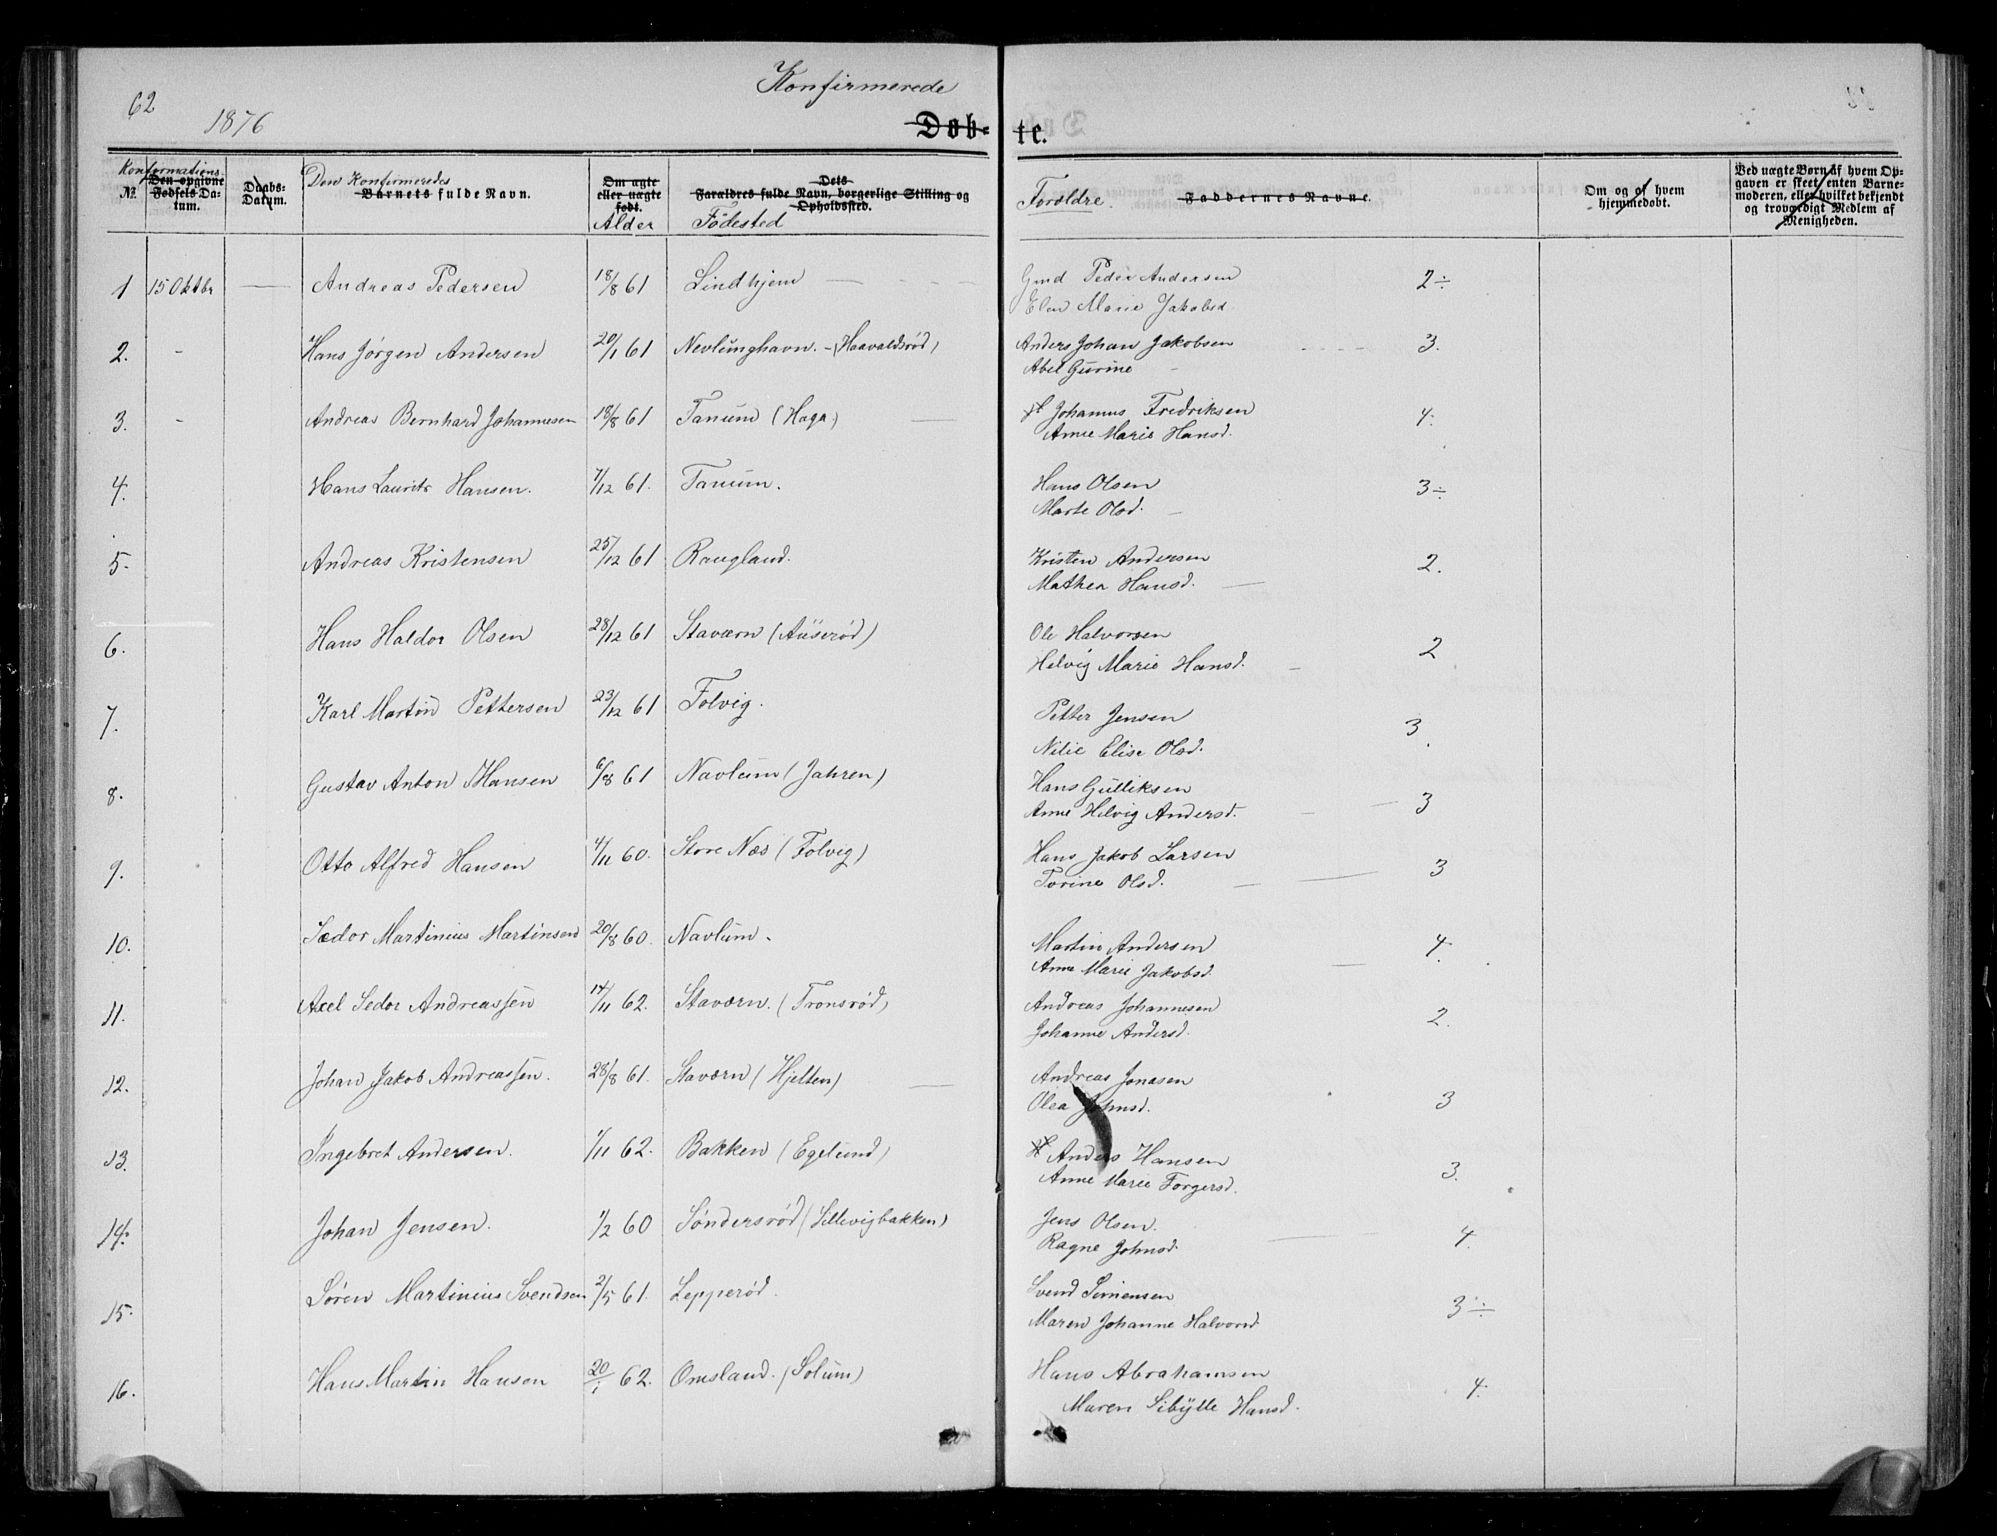 62
1876
Konfirmerede
Døb- te.
Konfirmations
№ Den opgivne Fødsels Datum. Daabs-Datum. Den Konfirmeredes Barnets fulde Navn. Om ægte eller uægte født. Alder Dets Forældres fulde Navn, borgerlige Stilling og Opholdssted. Födested Foroldre. Faddernes Navne. Om og af hvem hjemmedøbt. Ved uægte Børn af hvem Opgaven er skeet, enten Barnemoderen, eller hvilket bekjendt og troværdigt Medlem af Menigheden.
1 15 Oktbr — Andreas Pedersen 18/8 61 Lindhjem — Gmd Peder Andersen 2÷
Elen Marie Jakobsd.
2. - Hans Jørgen Andersen 20/1 61 Nevlunghavn. - (Haavaldsrød) Anders Johan Jakobsen 3.
Abel Gurine -
3. - Andreas Bernhard Johannesen 18/8 61 Tanum (Haga) — Johannus Fredriksen 4.
Anne Marie Hansd.
4. Hans Laurits Hansen. 7/12 61. Tanum. Hans Olsen 3÷
Marte Olsd. -
5. Andreas Kristensen 25/12 61 Raugland. Kristen Andersen 2.
Mathea Hansd. —
6. Hans Haldor Olsen 28/12 61 Staværn (Auserød) Ole Halvorsen 2
Helvig Marie Hansd. -
7. Karl Martin Pettersen 23/12 61 Folvig. Petter Jensen 3
Nilie Elise Olsd.
8. Gustav Anton Hansen 6/8 61 Navlum (Jahren) Hans Gulliksen 3
Anne Helvig Andersd. -
9. Otto Alfred Hansen 4/11 60. Store Næs (Folvig) Hans Jakob Larsen 3
Torine Olsd. —
10. Sedor Martinius Martinsen 20/8 60. Navlum. Martin Andersen 4.
Anne Marie Jakobsd. —
11. Axel Sedor Andreassen 14/11 62. Staværn. (Tronsrød) Andreas Johannesen 2.
Johanne Andersd.
12. Johan Jakob Andreassen. 28/8 61. Staværn (Hjelten) — Andreas Jonasen 3
Olea Johnsd.
13. Ingebret Andersen. 1/11 62. Bakken (Egelund) Anders Hansen 3.
Anne Marie Torgersd.
14. Johan Jensen. 1/2 60 Söndersröd (Sillevigbakken) Jens Olsen. 4.
Ragne Johnsd. —
15. Søren Martinius Svendsen 2/5 61. Lepperød. Svend Simensen 3÷
Maren Johanne Halvorsd.
16. Hans Martin Hansen 20/1 62. Omsland. (Solum) Hans Abrahamsen 4.
Maren Sibylle Hansd.